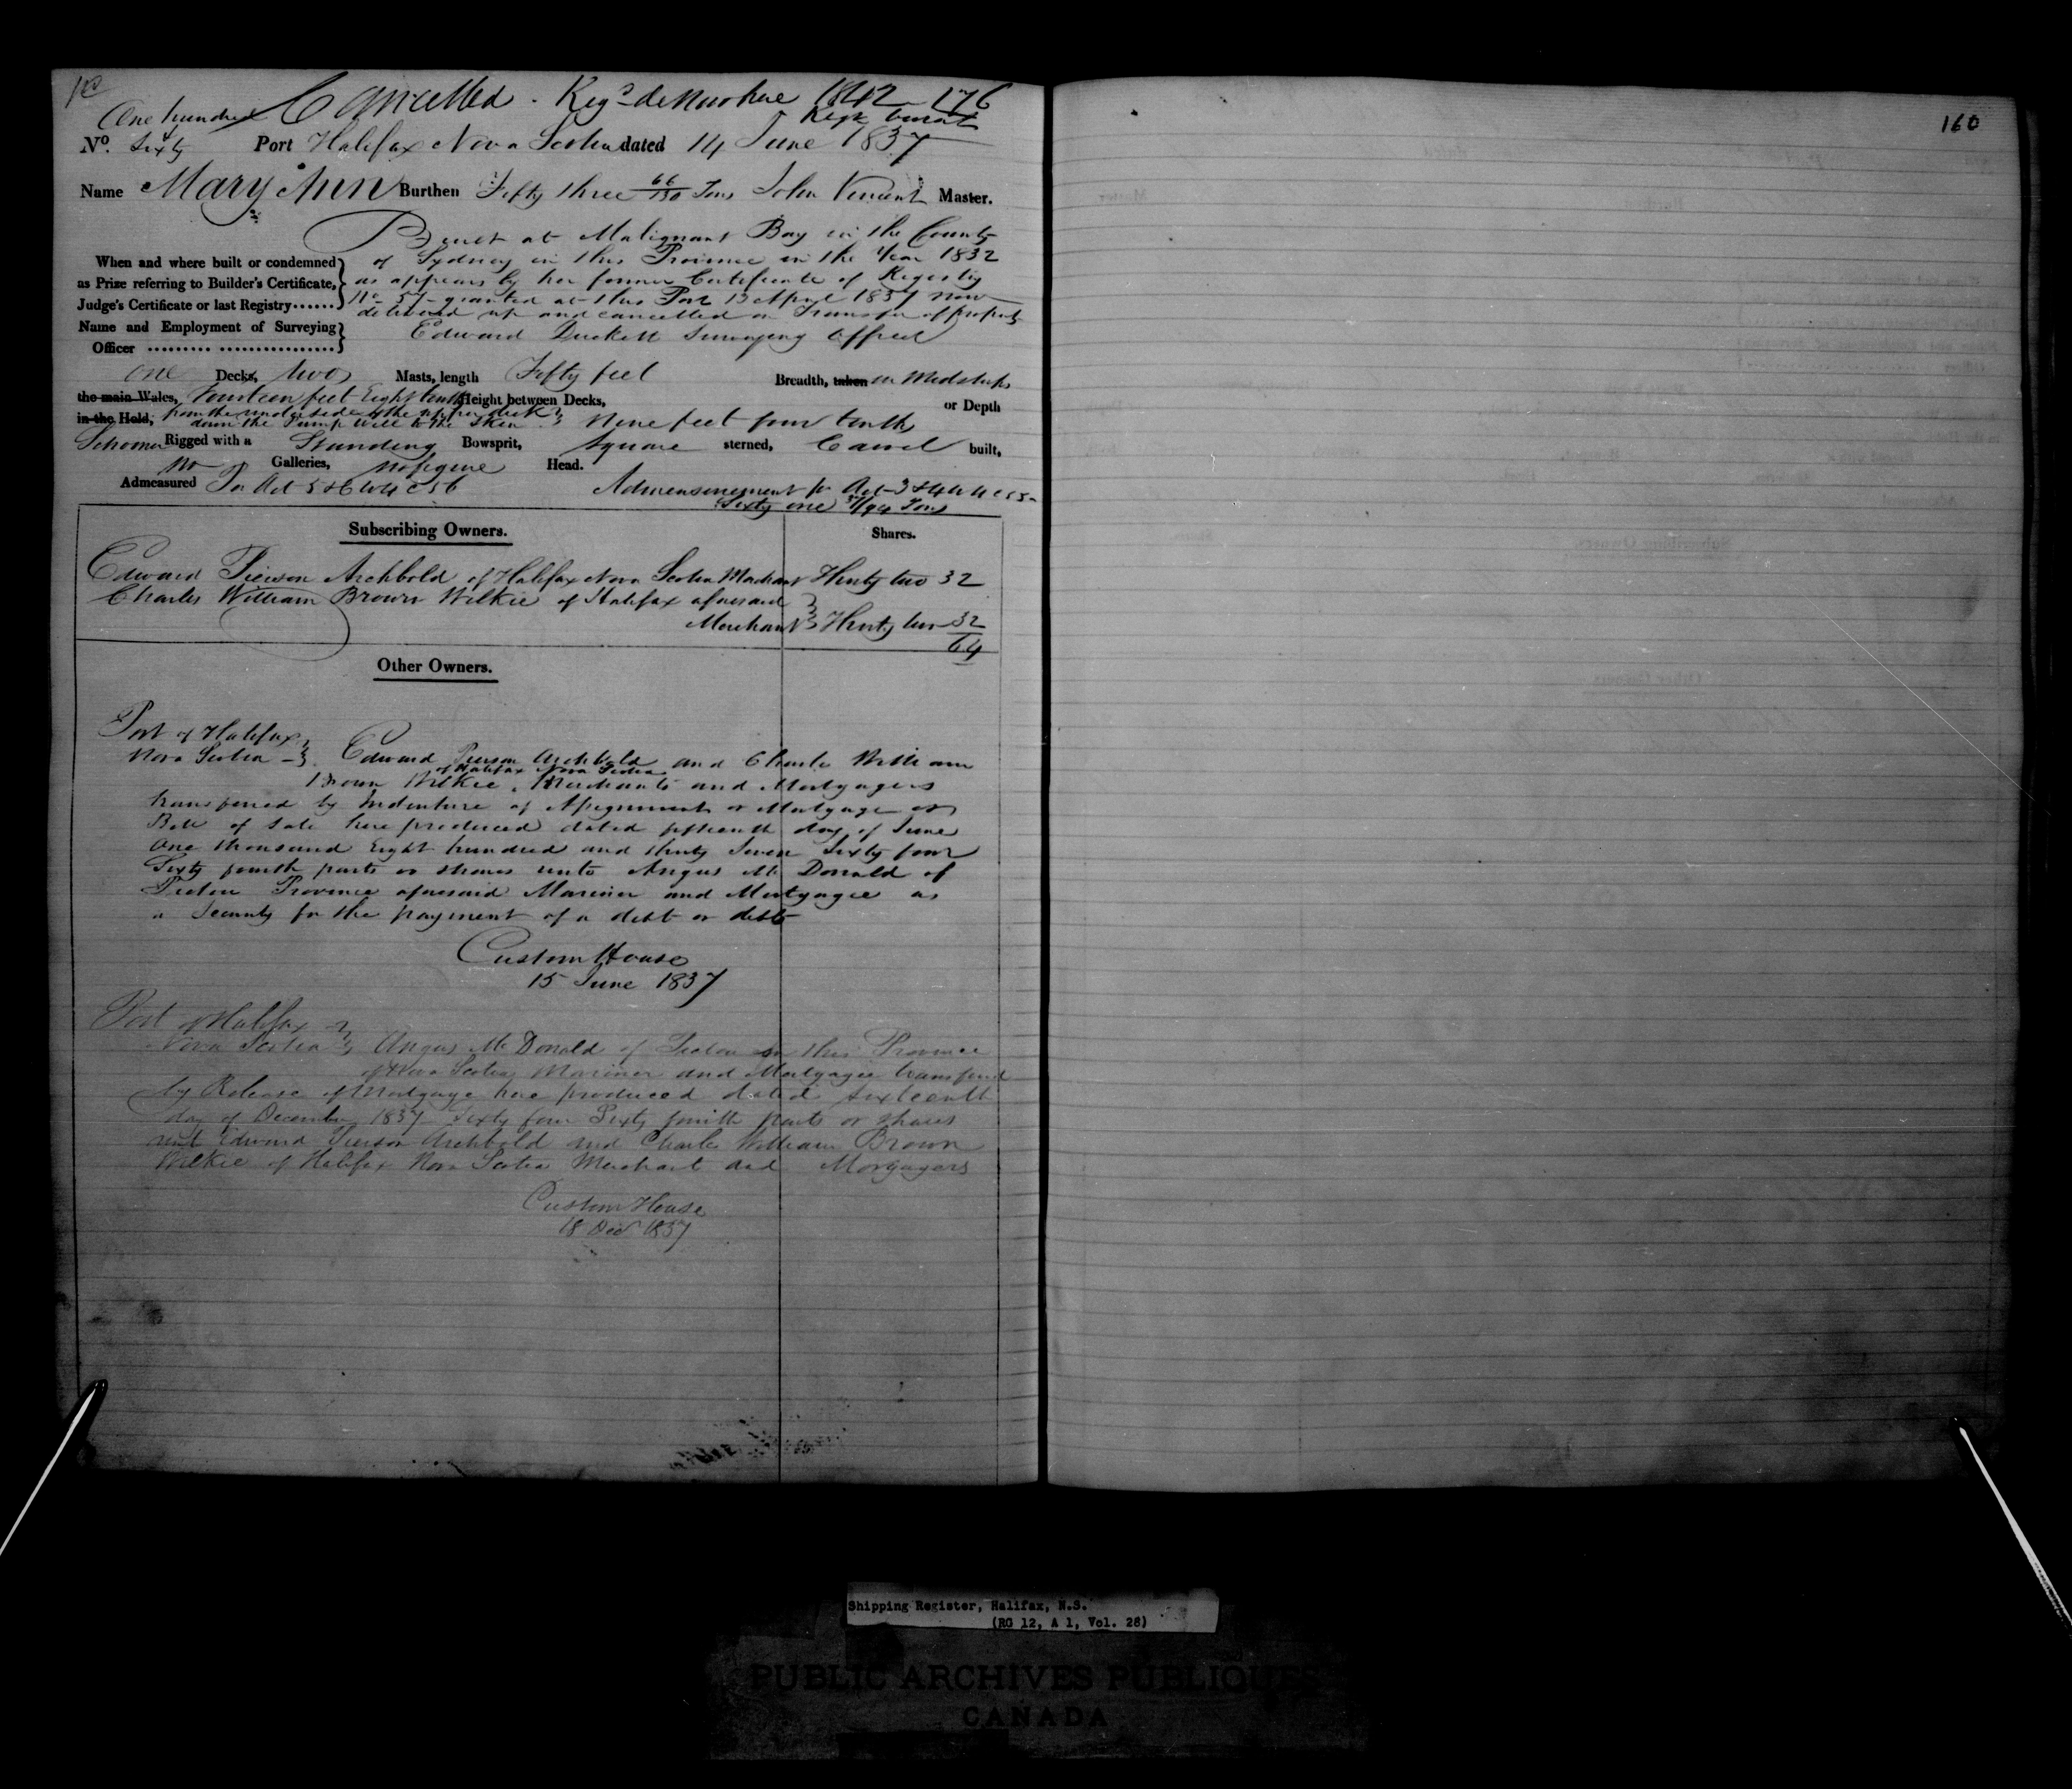 Cancelled. Regd de Novo here 1842 176
One hundred &
Regr burnt
No. Sixty Port Halifax Nova Scotia dated 14 June 1837
Name Mary Ann Burthen Fifty three 66/130 Tons John Vincent Master.
Built at Malignant Bay in the County
of Sydney in this Province in the Year 1832
as appears by her former Certificate of Registry
No 57 granted at this Port 13 April 1837 now
delivered up and cancelled on Transfer of property
When and where built or condemned
as Prize referring to Builder's Certificate,
Judge's Certificate or last Registry......
Name and Employment of Surveying
Officer Edward Duckett Surveying Officer
One Decks, two Masts, length Fifty feet Breadth, taken in Midships
the main Wales, Fourteen feet Eight tenths Height between Decks, or Depth
in the Hold, from the underside of the upper deck
down the Pump Well to the Skin Nine feet four tenths
Schooner Rigged with a Standing Bowsprit, Square sterned, Carvel built,
No Galleries, no figure Head.
Admeasured Pr Act 5 & 6 W 4 C 56 Admeasurement pr Act 3 & 4 W 4 C 55
Sixty one 37/94 Tons
Subscribing Owners. Shares.
Edward Pierson Archbold of Halifax Nova Scotia Merchant Thirty two 32
Charles William Brown Wilkie of Halifax aforesaid
Merchant Thirty two 32
64
Other Owners.
Port of Halifax
Nova Scotia Edward Pierson Archbold and Charles William
of Halifax Nova Scotia
Brown Wilkie, Merchants and Mortgagers
transferred by Indenture of Assignment or Mortgage or
Bill of Sale here produced dated fifteenth day of June
One thousand Eight hundred and thirty Seven Sixty four
Sixty fourth parts or shares unto Angus Mc Donald of
Pictou Province aforesaid Mariner and Mortgagee as
a Security for the payment of a debt or debts
Custom House
15 June 1837
Port of Halifax
Nova Scotia Angus Mc Donald of Pictou in this Province
of Nova Scotia Mariner and Mortgagee transferred
by Release of Mortgage here produced dated sixteenth
day of December 1837 Sixty four Sixty fourth parts or shares
unto Edward Pierson Archbold and Charles William Brown
Wilkie of Halifax Nova Scotia Merchant and Morgagers
Custom House
18 Decr 1837
160
Shipping Register, Halifax, N.S.
(RG 12, A 1, Vol. 28)
PUBLIC ARCHIVES PUBLIQUES
CANADA